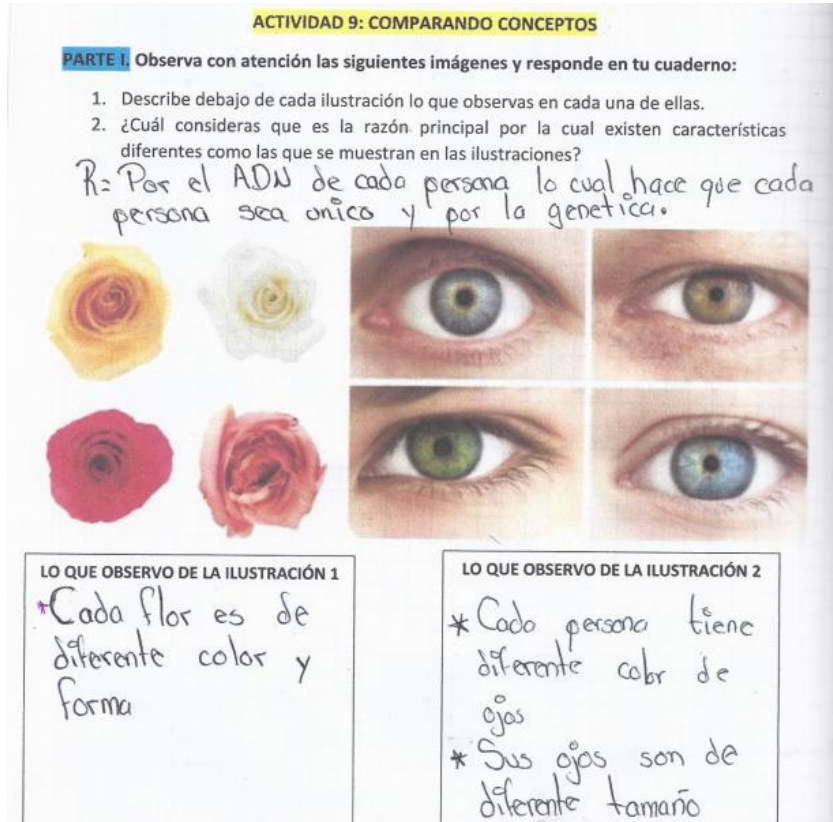 ACTIVIDAD 9: COMPARANDO CONCEPTOS
PARTE I. Observa con atención las siguientes imágenes y responde en tu cuaderno:
1. Describe debajo de cada ilustración lo que observas en cada una de ellas.
2. ¿Cuál consideras que es la razón principal por la cual existen características
diferentes como las que se muestran en las ilustraciones?
R= Por el ADN de cada persona lo cual hace que cada
persona sea unico y por la genetica.
LO QUE OBSERVO DE LA ILUSTRACIÓN 1
*Cada flor es de
diferente color y
forma
LO QUE OBSERVO DE LA ILUSTRACIÓN 2
* Cada persona tiene
diferente color de
ojos
* Sus ojos son de
diferente tamaño